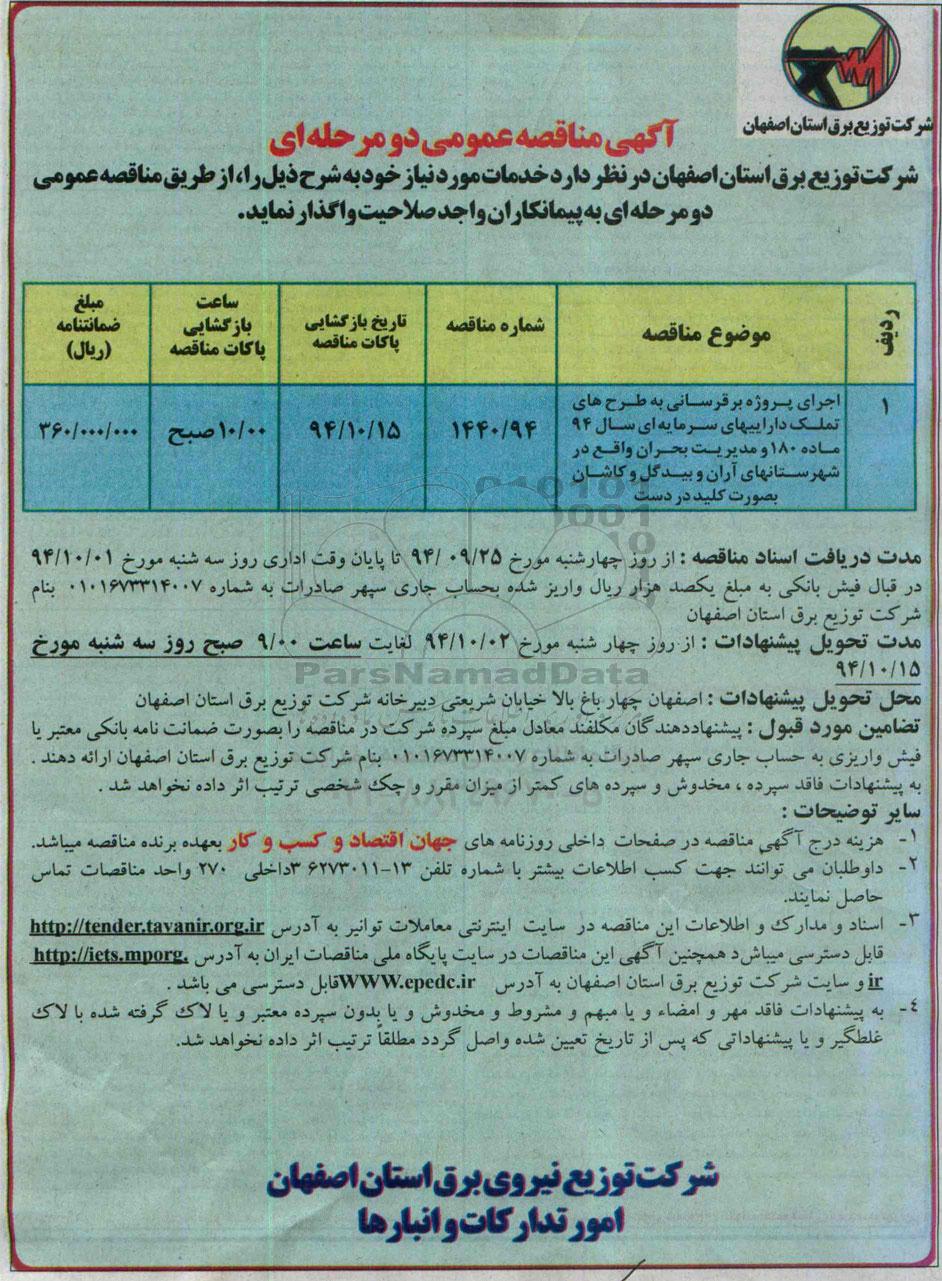 شرکت توزیع برق استان اصفهان
آگهی مناقصه عمومی دو مرحله ای
شرکت توزیع برق استان اصفهان در نظر دارد خدمات مورد نیاز خود به شرح ذیل را، از طریق مناقصه عمومی
دو مرحله ای به پیمانکاران واجد صلاحیت واگذار نماید.
ردیف	موضوع مناقصه	شماره مناقصه	تاریخ بازگشایی پاکات مناقصه	ساعت بازگشایی پاکات مناقصه	مبلغ ضمانتنامه (ریال)
۱	اجرای پروژه برقرسانی به طرح های	۱۴۴۰/۹۴	۹۴/۱۰/۱۵	۱۰/۰۰ صبح	۳۶۰/۰۰۰/۰۰۰
تملک داراییهای سرمایه ای سال ۹۴
ماده ۱۸۰ و مدیریت بحران واقع در
شهرستانهای آران و بیدگل و کاشان
بصورت کلید در دست
مدت دریافت اسناد مناقصه : از روز چهارشنبه مورخ ۹۴/ ۰۹/۲۵ تا پایان وقت اداری روز سه شنبه مورخ ۹۴/۱۰/۰۱
در قبال فیش بانکی به مبلغ یکصد هزار ریال واریز شده بحساب جاری سپهر صادرات به شماره ۰۱۰۱۶۷۳۳۱۴۰۰۷ بنام
شرکت توزیع برق استان اصفهان
مدت تحویل پیشنهادات : از روز چهار شنبه مورخ ۹۴/۱۰/۰۲ لغایت ساعت ۹/۰۰ صبح روز سه شنبه مورخ
۹۴/۱۰/۱۵
ParsNamadData
محل تحویل پیشنهادات : اصفهان چهار باغ بالا خیابان شریعتی دبیرخانه شرکت توزیع برق استان اصفهان
تضامین مورد قبول : پیشنهاددهندگان مکلفند معادل مبلغ سپرده شرکت در مناقصه را بصورت ضمانت نامه بانکی معتبر یا
فیش واریزی به حساب جاری سپهر صادرات به شماره ۰۱۰۱۶۷۳۳۱۴۰۰۷ بنام شرکت توزیع برق استان اصفهان ارائه دهند .
به پیشنهادات فاقد سپرده ، مخدوش و سپرده های کمتر از میزان مقرر و چک شخصی ترتیب اثر داده نخواهد شد .
سایر توضیحات :
۱- هزینه درج آگهی مناقصه در صفحات داخلی روزنامه های جهان اقتصاد و کسب و کار بعهده برنده مناقصه میباشد.
۲- داوطلبان می توانند جهت کسب اطلاعات بیشتر با شماره تلفن ۱۳-۳۶۲۷۳۰۱۱ داخلی ۲۷۰ واحد مناقصات تماس
حاصل نمایند.
۳- اسناد و مدارک و اطلاعات این مناقصه در سایت اینترنتی معاملات توانیر به آدرس http://tender.tavanir.org.ir
قابل دسترسی میباشد همچنین آگهی این مناقصات در سایت پایگاه ملی مناقصات ایران به آدرس http://iets.mporg.
ir و سایت شرکت توزیع برق استان اصفهان به آدرس WWW.epedc.ir قابل دسترسی می باشد .
۴- به پیشنهادات فاقد مهر و امضاء و یا مبهم و مشروط و مخدوش و یا بدون سپرده معتبر و یا لاک گرفته شده با لاک
غلطگیر و یا پیشنهاداتی که پس از تاریخ تعیین شده واصل گردد مطلقاً ترتیب اثر داده نخواهد شد.
شرکت توزیع نیروی برق استان اصفهان
امور تدارکات و انبارها